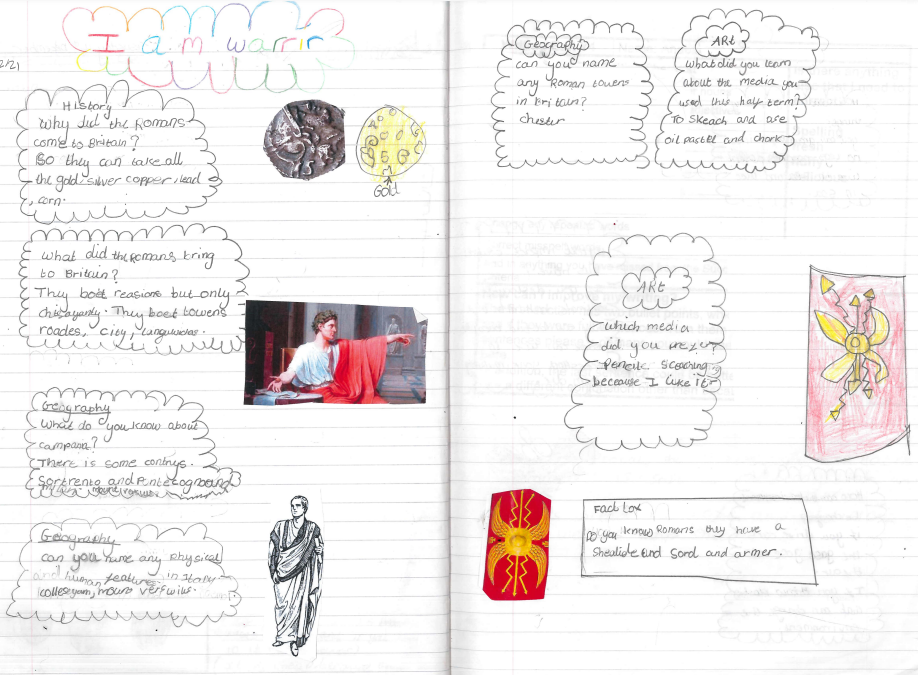 2/21
I am warrir
History
Why did the Romans
come to Britain?
So they can take all
the gold, silver copper, lead
, corn.
What did the Romans bring
to Britain?
They boet reasions but only
They boet towens
roades, city,
Gold
Geography
What do you know about
campana?
There is some contrys.
Sorrento and
Geography
can you name any Physical
and human features in Italy
colleseyam, mount
Geography
can you name
any Roman towens
in Britain?
chester
ARt
what did you learn
about the media you
used this half term?
To skeach and use
oil pastel and chork
ARt
which media
did you
Pencile sceaching
because I like it
Fact box
Do you know Romans they have a
Sheulide and Sord and armer.